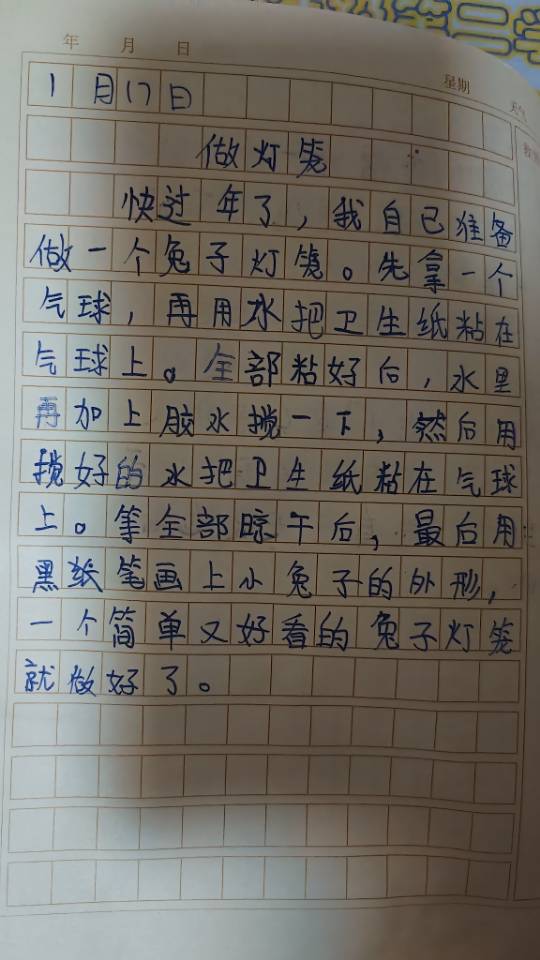 第二学
年 月 日
星期 天气
1月17日
做灯笼
快过年了，我自己准备
做一个兔子灯笼。先拿一个
气球，再用水把卫生纸粘在
气球上。全部粘好后，水里
再加上胶水搅一下，然后用
搅好的水把卫生纸粘在气球
上。等全部晾午后，最后用
黑纸笔画上小兔子的外形，
一个简单又好看的兔子灯笼
就做好了。